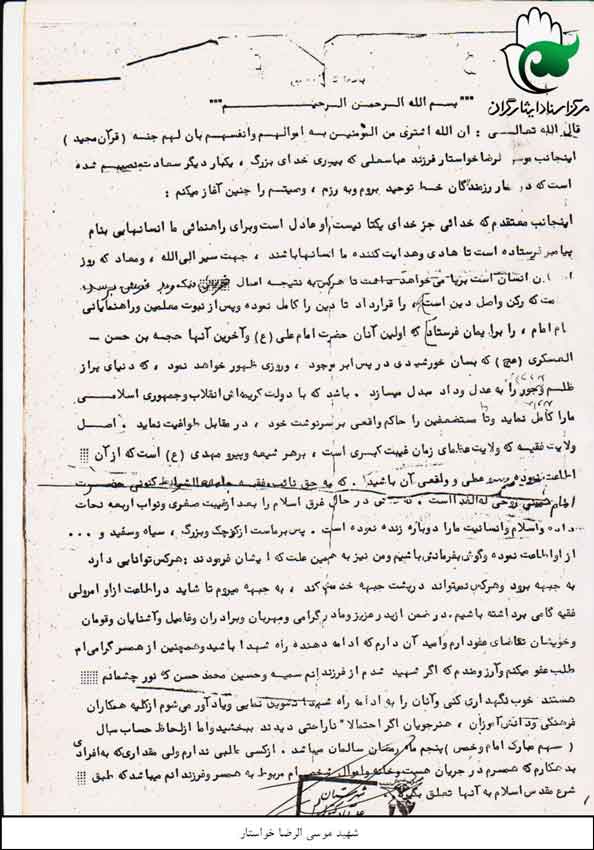 مرکز اسناد ایثارگران
"""بسم الله الرحمن الرحیم"""
قال الله تعالی : ان الله اشتری من المومنین به اموالهم وانفسهم بان لهم جنه ( قرآن مجید )
اینجانب موسی لرضا خواستار فرزند عباسعلی که بیاری خدای بزرگ ، یکبار دیگر سعادت نصیبم شده
است که در رزمندگان خط توحید بروم وبه رزم ، وصیتم را چنین آغاز میکنم :
اینجانب معتقدم که خدائی جز خدای یکتا نیست او عادل است وبرای راهنمائی ما انسانهایی بنام
پیامبر فرستاده است تا هادی وهدایت کننده ما انسانها باشند ، جهت سیر الی الله ، ومعاد که روز
انسان است برپا می خواهد داشت تا هرکس به نتیجه اعمال
مت که رکن واصل دین است ، را قرارداد تا دین را کامل نموده وپس از نبوت معلمین وراهنمایانی
امام ، را برا یمان فرستاد که اولین آنان حضرت امام علی (ع) وآخرین آنها حجه بن حسن -
العسکری (عج) که بسان خورشیدی در پس ابر موجود ، وروزی ظهور خواهد نمود ، که دنیای پر از
ظلم وجور را به عدل وداد مبدل میسازد . باشد که با دولت کریمه اش انقلاب وجمهوری اسلامی
ما را کامل نماید وتا مستضعفین را حاکم واقعی بر سرنوشت خود ، در مقابل طواغیت نماید . اصل
ولایت فقیه که ولایت عظمای زمان غیبت کبری است ، بر هر شیعه وپیرو مهدی (ع) است که از آن
اطاعت نموده و واقعی آن باشید . که به حق نائب فقیه جامعه الشرایط کنونی حضرت
امام خمینی روحی له الفدا است ، که در حال غرق اسلام را بعد از غیبت صغری ونواب اربعه نجات
داده واسلام وانسانیت ما را دوباره زنده نموده است . پس بر ماست از کوچک وبزرگ ، سیاه وسفید و ...
از او اطاعت نموده وگوش بفرمانش باشیم ومن نیز به همین علت که ایشان فرمودند : هرکس توانایی دارد
به جبهه برود وهرکس نمیتواند در پشت جبهه خدمت کند ، به جبهه میروم تا شاید در اطاعت از او امر ولی
فقیه گامی برداشته باشیم . در ضمن از پدر عزیز ومادر گرامی ومهربان وبرادران وفامیل وآشنایان وقومان
وخویشان تقاضای عفو دارم وامید آن دارم که ادامه دهنده راه شهدا باشید وهمچنین از همسر گرامی ام
طلب عفو میکنم وآرزومندم که اگر شهید شدم از فرزندانم سمیه وحسین محمد حسن که نور چشمانم
هستند خوب نگهداری کنی وآنان را به ادامه راه شهدا تشویق نمایی ویاد آور می شوم از کلیه همکاران
فرهنگی ودانش آموزان ، هنرجویان اگر احتمالا" ناراحتی دیدند ببخشید واما از لحاظ حساب سال
( سهم مبارک امام وخمس ) پنجم ماه رمضان سالمان میباشد . از کسی طلبی ندارم ولی مقداری که به افرادی
بدهکارم که همسرم در جریان هست وخانه واموال شخصی ام مربوط به همسر وفرزندانم میباشد که طبق
شرع مقدس اسلام به آنها تعلق بگیرد .
شهید موسی الرضا خواستار